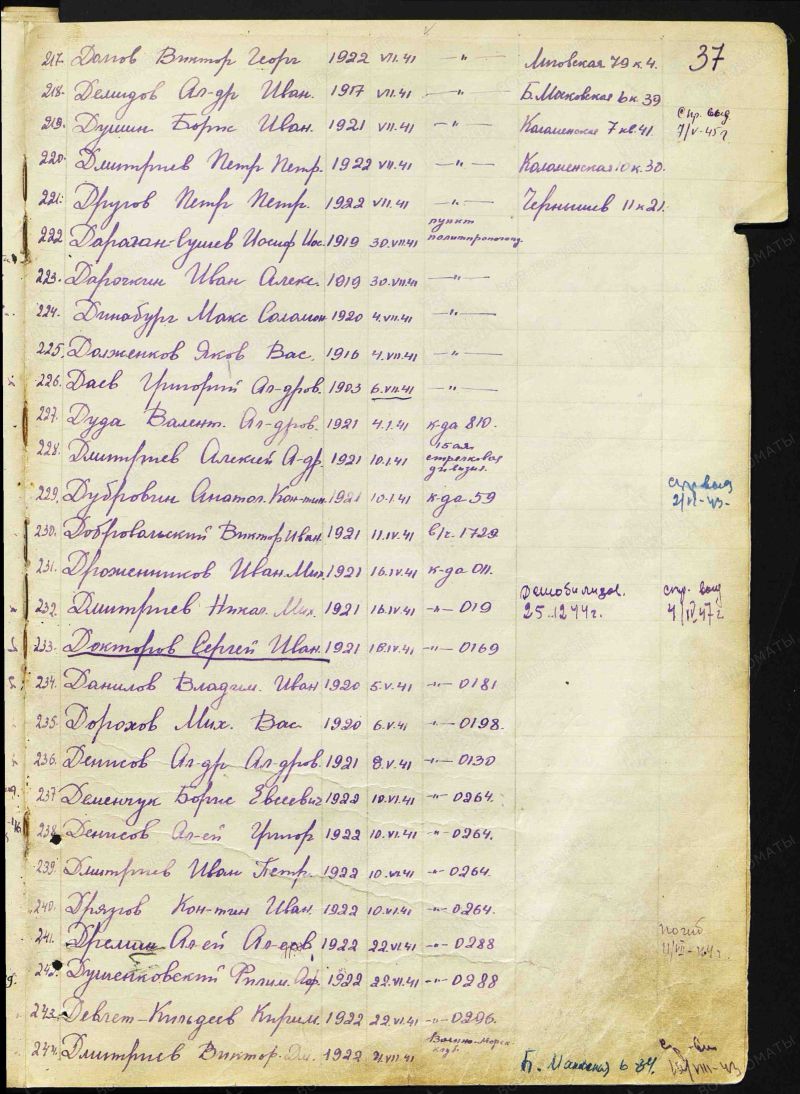 37
217. Данов Виктор Георг 1922 VII.41 —"— Лиговская 79 к. 4.
218. Демидов Ал-др Иван. 1917 VII.41 —"— Б. Московская 6 к 39
219. Душин Борис Иван. 1921 VII.41 —"— 7 кв. 41. Спр. выд 7/V-45 г
220. Дмитриев Петр Петр. 1922 VII.41 —"— Коломенская 10 к 30.
221. Другов Петр Петр. 1922 VII.41 —"— Чернышев 11 к 21.
222 Дараган-Сущев Иосиф Иос. 1919 30.VII.41 пункт
223. Дарочкин Иван Алекс. 1919 30.VII.41 —"—
224. Динабург Макс Соломон 1920 4.VII.41 —"—
225. Долженков Яков Вас. 1916 4.VII.41 —"—
226. Даев Григорий Ал-дров. 1903 6.VII.41 —"—
227. Дуда Валент. Ал-дров. 1921 4.1.41 к-да 810.
228. Дмитриев Алексей А-др. 1921 10.1.41 15ая стрелковая дивизия.
229. Дубровин Анатол. Кон-тин. 1921 10.1.41 к-да 59 спр выд 2/VI-43-
230. Добровальский Виктор Иван. 1921 11.IV.41 в/ч. 1729
231. Дроженников Иван Мих. 1921 16.IV.41 к-да 011.
232. Дмитриев Никол. Мих. 1921 16.IV.41 -"- 019 Демобилизов. 25.1244 г. спр. выд 4/IV 47 г
233. Докторов Сергей Иван. 1921 18.IV.41 -"- 0169
234. Данилов Владим. Иван 1920 5.V.41 -"- 0181
235. Дорохов Мих. Вас 1920 6.V.41 -"- 0198.
236. Денисов Ал-др Ал-дров. 1921 8.V.41 -"- 0130
237 Деменчук Борис Евсеевич 1922 10.VI.41 -"- 0264.
238. Денисов Ал-ей Григор 1922 10.VI.41 -"- 0264.
239. Дмитриев Иван Петр. 1922 10.VI.41 -"- 0264.
240. Дрязгов Кон-тин Иван. 1922 10.VI.41 -"- 0264.
241. Ал-ей Ал-еев 1922 22.VI.41 -"- 0288 погиб
242. Душенковский Филим. 1922 22.VI.41 -"- 0288
243. Девлет-Кильдеев Кирим. 1922 22.VI.41 -"- 0296.
244. Дмитриев Виктор. Дм. 1922 VII.41 Военно-Морск. клуб. Б. 6-34.